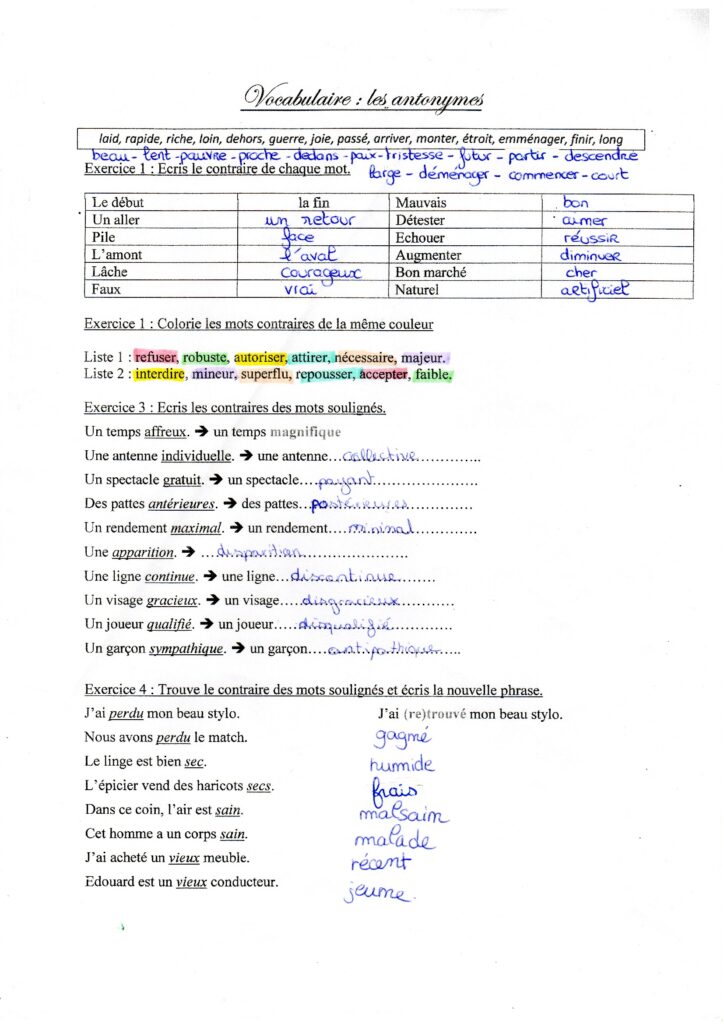 Vocabulaire : les antonymes
laid, rapide, riche, loin, dehors, guerre, joie, passé, arriver, monter, étroit, emménager, finir, long
beau - lent - pauvre - proche - dedans - paix - tristesse - futur - partir - descendre
Exercice 1 : Ecris le contraire de chaque mot. large - déménager - commencer - court
Le début la fin Mauvais bon
Un aller un retour Détester aimer
Pile face Echouer réussir
L'amont l'aval Augmenter diminuer
Lâche courageux Bon marché cher
Faux vrai Naturel artificiel
Exercice 1 : Colorie les mots contraires de la même couleur
Liste 1 : refuser, robuste, autoriser, attirer, nécessaire, majeur.
Liste 2 : interdire, mineur, superflu, repousser, accepter, faible.
Exercice 3 : Ecris les contraires des mots soulignés.
Un temps affreux. ➔ un temps magnifique
Une antenne individuelle. ➔ une antenne...collective..............
Un spectacle gratuit. ➔ un spectacle....payant....................
Des pattes antérieures. ➔ des pattes...postérieures..............
Un rendement maximal. ➔ un rendement....minimal..............
Une apparition. ➔ ...disparition.......................
Une ligne continue. ➔ une ligne...discontinue........
Un visage gracieux. ➔ un visage....disgracieux............
Un joueur qualifié. ➔ un joueur.....disqualifié.............
Un garçon sympathique. ➔ un garçon....antipathique.....
Exercice 4 : Trouve le contraire des mots soulignés et écris la nouvelle phrase.
J'ai perdu mon beau stylo. J'ai (re)trouvé mon beau stylo.
Nous avons perdu le match. gagné
Le linge est bien sec. humide
L'épicier vend des haricots secs. frais
Dans ce coin, l'air est sain. malsain
Cet homme a un corps sain. malade
J'ai acheté un vieux meuble. récent
Edouard est un vieux conducteur. jeune.